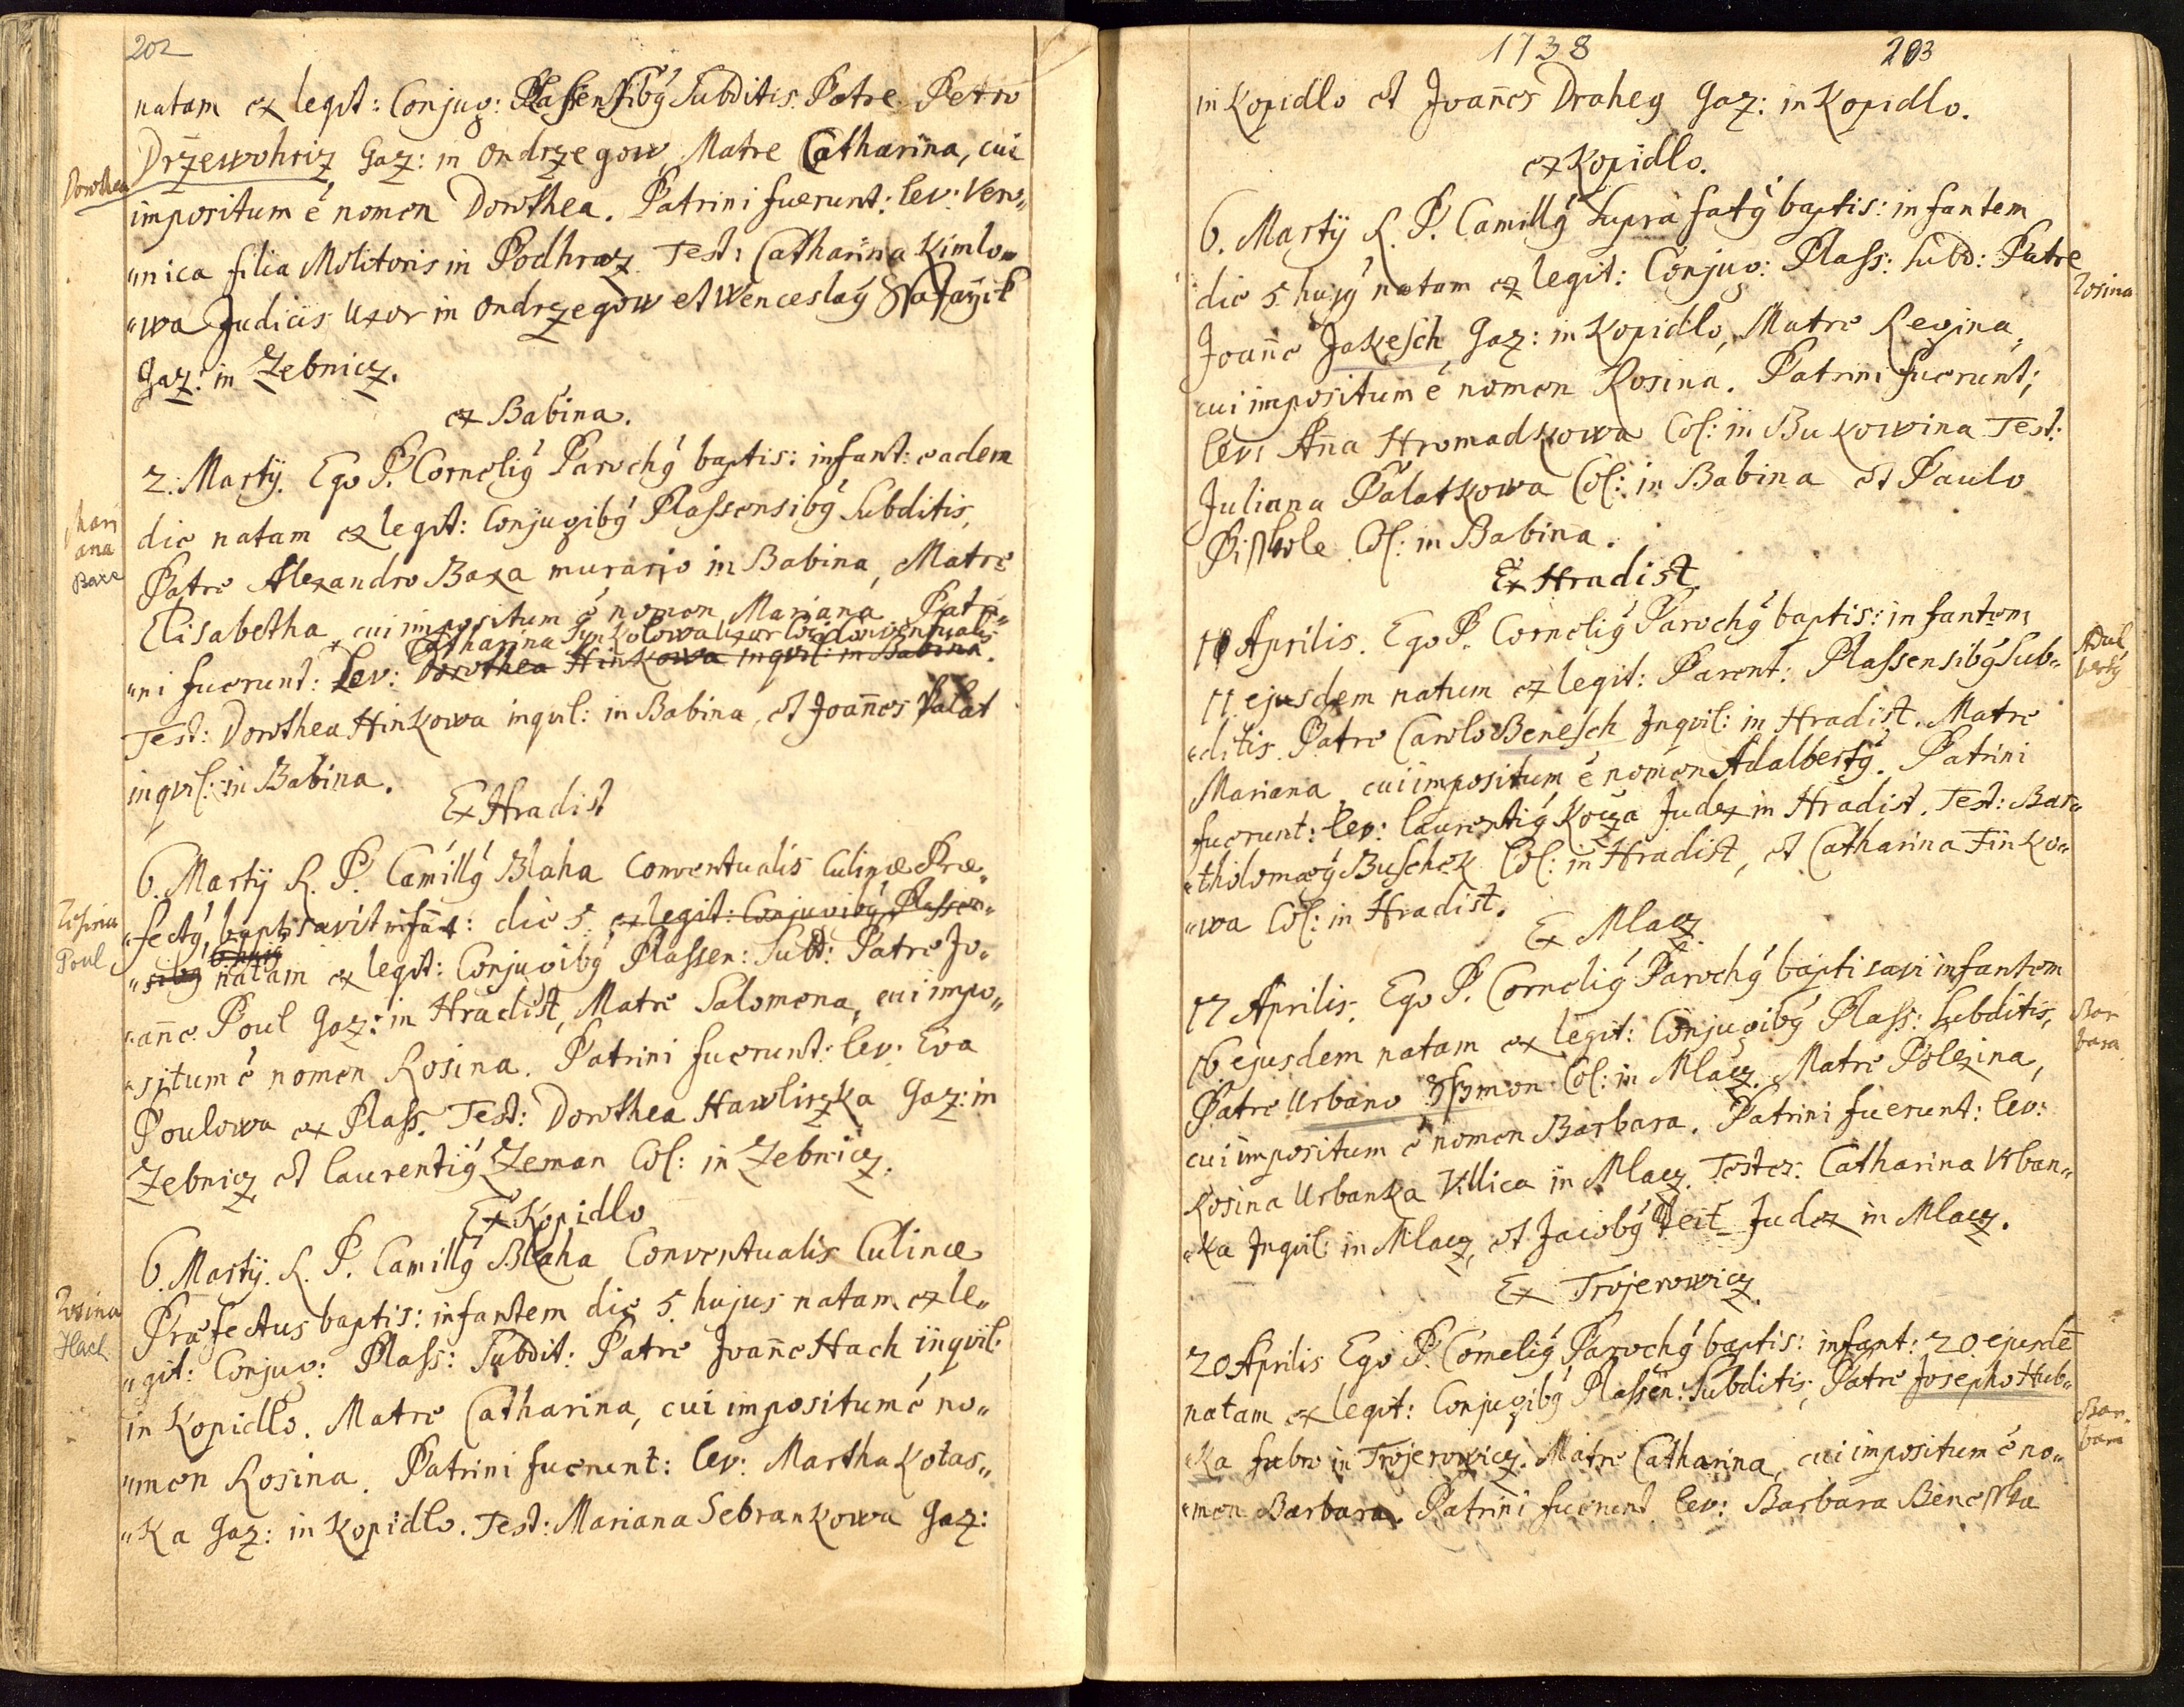 202
natam ex legit: Conjug: Plassensibg Subditis. Patre Petro
Drzewohriz Gaz: in Ondrzegow, Matre Catharina, cui
Dorothea
impositum é nomen Dorothea. Patrini fuerunt: lev: Vero„
„nica filia Molitoris in Podhraz. Test: Catharina Kimlo„
„wa Judicis Uxor in Ondrzegow et Wenceslag
Gaz: in Zebnicz.
ex Babina.
2. Martÿ. Ego P. Cornelig Parochg baptis: infant: eadem
Mari
ana
Baxe
die natam ex legit: Conjugibg Plassensibg Subditis,
Patre Alexandro Baxa murario in Babina, Matre
Elisabetha, cui impositum é nomen Mariana. Patri„
Catharina Uxor
„ni fuerunt: Lev: Dorothea Hinkowa inqvil: in Babina.
Test: Dorothea Hinkowa inqvil: in Babina, et Joan̄es Palat
inqvil: in Babina.
Ex Hradist
6. Martÿ R. P. Camillg Blaha Conventualis Culinæ Præ„
Rosina
Poul
„fectg, baptisavit infāt: die 5. ex legit: Conjugibg Plassen„
„sibg natam ex legit: Conjugibg Plassen: Subt: Patre Jo„
„an̄e Poul Gaz: in Hradist, Matre Salomena, cui impo„
„situm é nomen Rosina. Patrini fuerunt: lev: Eva
Poulowa ex Plass. Test: Dorothea Hawliczka Gaz: in
Zebnicz et laurentig Zeman Col: in Zebnicz.
Ex Kopidlo
6. Martÿ. R. P. Camillg Blaha Conventualis Culinæ
Rosina
Hach
Præfectus baptis: infantem die 5 hujus natam ex le„
„git: Conjug: Plass: Subdit: Patre Joan̄e Hach inqvil:
in Kopidlo. Matre Catharina, cui impositum é no„
„men Rosina. Patrini fuerunt: lev: Martha Kotas„
„Ka Gaz: in Kopidlo. Test: Mariana Sebrankowa Gaz:
1738
203
in Kopidlo et Joan̄es Draheg Gaz: in Kopidlo.
ex Kopidlo.
6. Martÿ R. P. Camillg Supra fatg baptis: infantem
die 5. hujg natam ex legit: Conjug: Plass: Subd: Patre
Rosina
Joan̄e Jakesch Gaz: in Kopidlo, Matre Regina,
cui impositum é nomen Rosina. Patrini fuerunt;
lev: An̄a Hromadkowa Col: in Bukowina Test:
Juliana Palatkowa Col: in Babina et Paulo
Col: in Babina.
Ex Hradist.
Aprilis. Ego P. Cornelig Parochg baptis: infantem
Adal
bertg
11 ejusdem natum ex legit: Parent: Plassensibg Sub„
„ditis. Patre Carolo Benesch Inqvil: in Hradist. Matre
Mariana, cui impositum é nomen Adalbertg. Patrini
fuerunt: lev: laurentig Kocza Judex in Hradist. Test: Bar„
„tholomæg Buschek Col: in Hradist, et Catharina Finko„
„wa Col: in Hradist.
Ex Mlacz.
17 Aprilis. Ego P. Cornelig Parochg baptisavi infantem
Bar
bara
16 ejusdem natam ex legit: Conjugibg Plass: Subditis,
Patre Urbano Col: in Mlacz. Matre Polexina,
cui impositum é nomen Barbara. Patrini fuerunt: lev:
Rosina Urbanka Villica in Mlacz. Testes: Catharina Urban„
„ka Inqvil: in Mlacz, et Jacobg Teit Judex in Mlacz.
Ex Trojerowicz.
20 Aprilis Ego P. Cornelig Parochg baptis: infant: 20 ejusdē
natam ex legit: Conjugibg Plassen: Subditis, Patre Josepho Hub„
Bar„
bara
„Ka fabro in Trojerowicz. Matre Catharina, cui impositum é no„
„men Barbara. Patrini fuerunt lev: Barbara Benesska